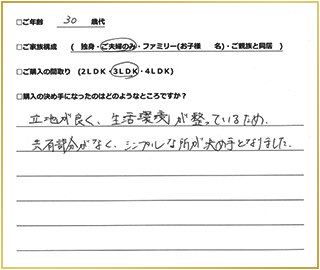 □ご年齢　30　歳代
□ご家族構成　( 独身・ご夫婦のみ・ファミリー(お子様　名)・ご親族と同居 )
□ご購入の間取り　(2LDK・3LDK・4LDK)
□購入の決め手になったのはどのようなところですか?
立地が良く、生活環境が整っているため。
共有部分がなく、シンプルな所が決め手となりました。